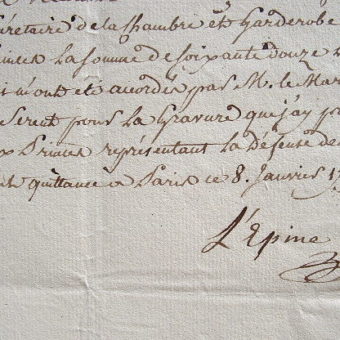 crétaire de la Chambre et Garderobe
la Somme de soixante douze
m'ont eté accordés par M. le Mar
Serent pour la Gravure que j'ay
Princes représentant la Défense de
quittance a Paris ce 8. Janvier 17
L'Epine